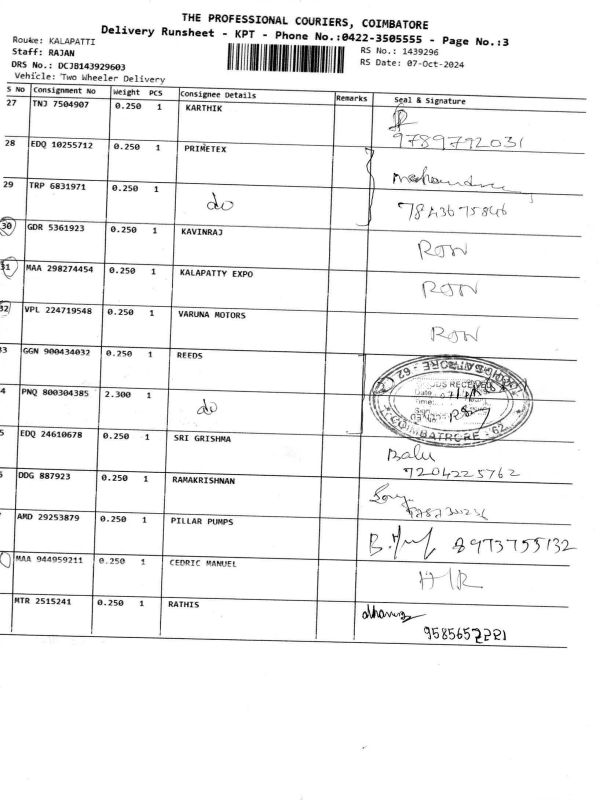 THE PROFESSIONAL COURIERS, COIMBATORE
Delivery Runsheet - KPT - Phone No.:0422-3505555 - Page No.:3
Rouke: KALAPATTI
Staff: RAJAN
RS No.: 1439296
DRS No.: DCJB143929603
RS Date: 07-Oct-2024
Vehicle: Two Wheeler Delivery
S No Consignment No Weight PCS Consignee Details Remarks Seal & Signature
27 TNJ 7504907 0.250 1 KARTHIK
9789792031
28 EDQ 10255712 0.250 1 PRIMETEX
29 TRP 6831971 0.250 1 do 7843675846
30 GDR 5361923 0.250 1 KAVINRAJ ROW
31 MAA 298274454 0.250 1 KALAPATTY EXPO ROW
32 VPL 224719548 0.250 1 VARUNA MOTORS ROW
3 GGN 900434032 0.250 1 REEDS
4 PNQ 800304385 2.300 1 do
GOODS RECEIVED
Date
Time:
Sign
COIMBATRORE - 62
5 EDQ 24610678 0.250 1 SRI GRISHMA Balu
7204225762
DDG 887923 0.250 1 RAMAKRISHNAN
AMD 29253879 0.250 1 PILLAR PUMPS 8973755132
MAA 944959211 0.250 1 CEDRIC MANUEL H/R
MTR 2515241 0.250 1 RATHIS